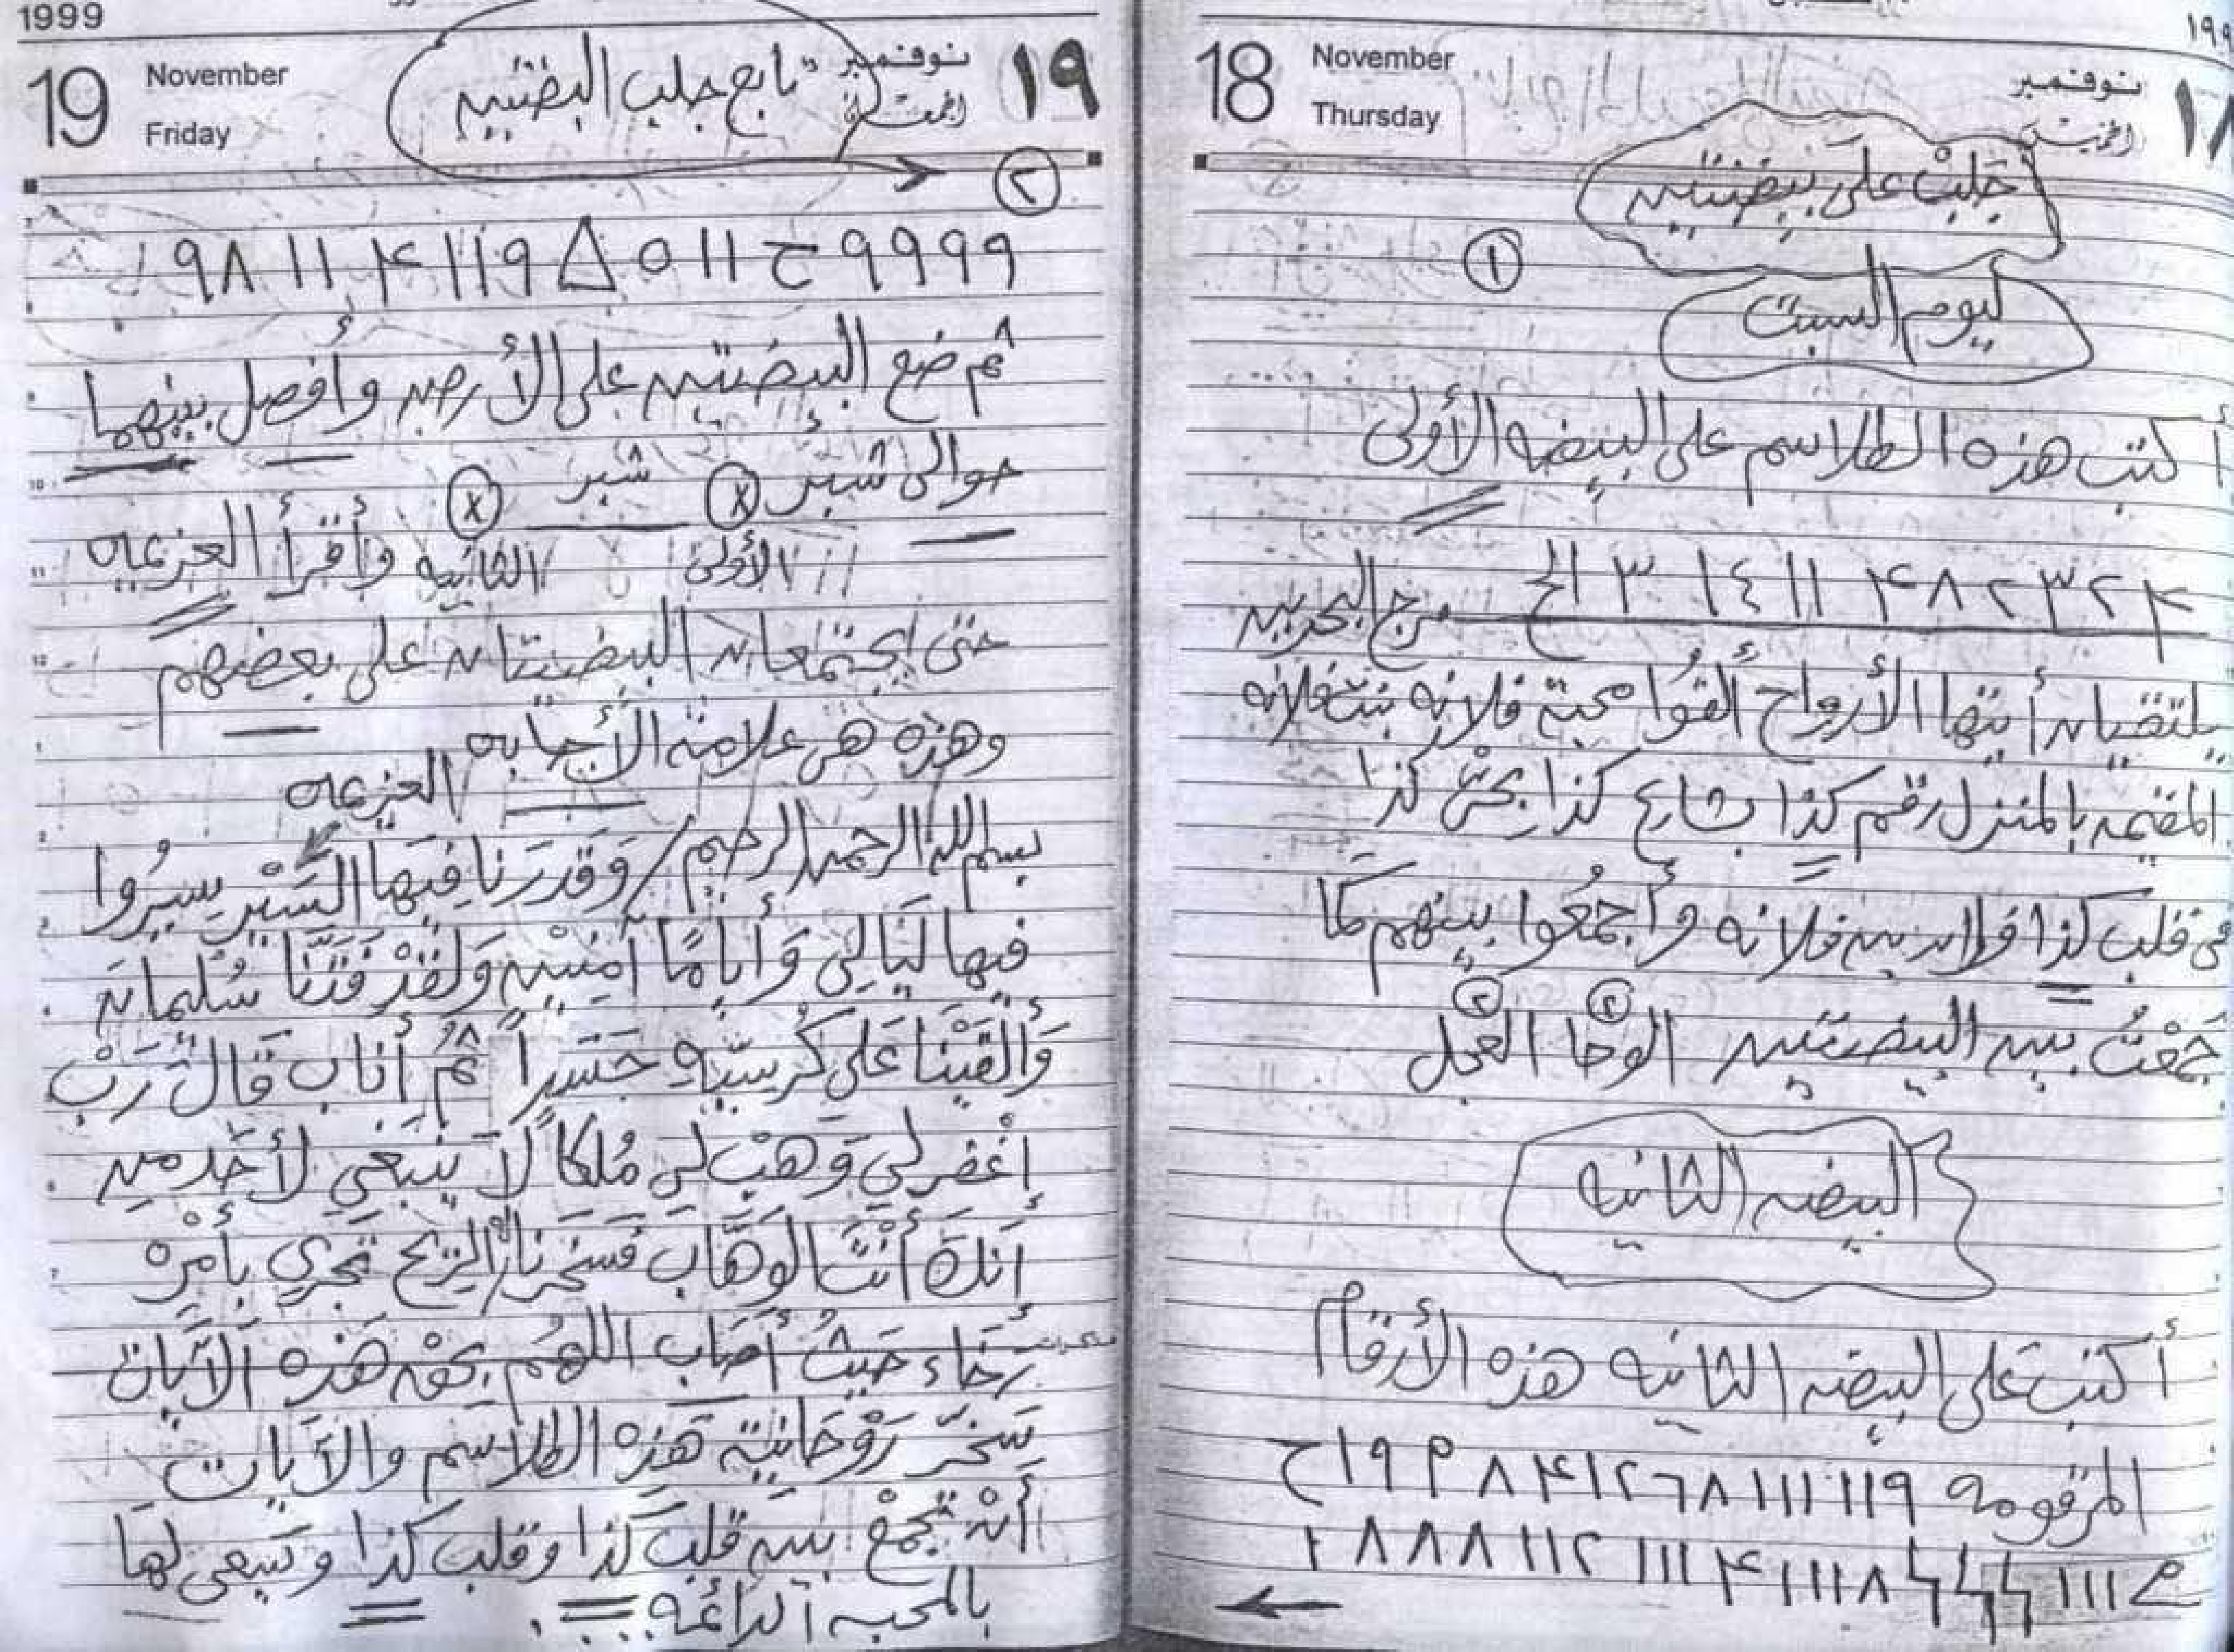 ١٩٩
18
November
Thursday
نوفمبر
الخميس
١٨
جَلبْ على بيضتين
١
ليوم السبت
أكتب هذه الطلاسم على البيضه الأولى
مرج البحرين
يلتقيان أيتها الأرواح ألقوا محبة فلانه بنت فلانه
المقيمه بالمنزل رقم كذا بشارع كذا بحى كذا
فى قلب كذا فلان بن فلانه وأجمعوا بينهم كما
جَمَعْتُ بين البيضتين الوحا ٢ العجل ٢
البيضه الثانيه
أكتب على البيضه الثانيه هذه الأرقام
المرقومه ١١٩ ١١١ ٨
1999
19
November
Friday
تابع جلب البيضتين
نوفمبر
الجمعة
١٩
٢
٩٩٩٩ ح ١١ ٥ △ ١١٩ ۴ ١١ ٩٨
ثم ضع البيضتين على الأرض وأفصل بينهما
حوالى شبر x شبر x
الأولى الثانيه وأقرأ العزيمه
حتى يجتمعان البيضتان على بعضهم
وهذه هى علامة الأجابه
العزيمه
بسم الله الرحمن الرحيم / وَقَدرَنا فِيَها السَّيْر سِيرُوا
فيها لَيَالِي وَأَيامًا آمِنين وَلَقَدْ فَتَنَّا سُليمان
وَأَلقَيْنَا عَلى كُرسيِّهِ جَسَداً ثُمَّ أناب قَالَ رَبْ
اغْفر لي وَهَبْ لي مُلكا لَا يَنبَغي لأحَد مِن
أنكَ أنْتَ الوَهَّاب فَسَخرنا الريحَ تَجري بأمره
رُخَاء حَيثُ أصَاب اللهُم بحق هَذه الآيات
سَخّر رَوْحَانيَة هَذه الطلاسم والآيات
أنْ تجمع بين قلب كذا وقلب كذا وتسعى لها
بالمحبه الدائمه